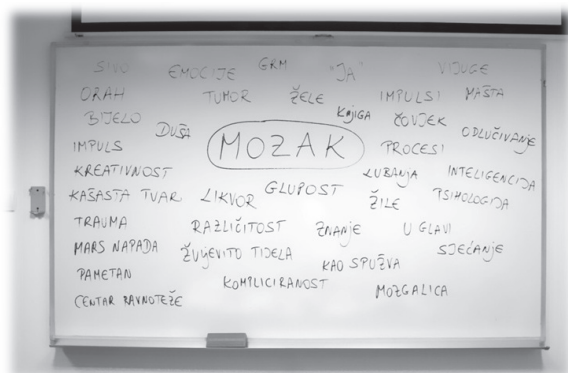 SIVO EMOCIJE GRM "JA" VIJUGE
ORAH TUMOR ŽELE IMPULSI MAŠTA
BIJELO DUŠA KNJIGA ČOVJEK ODLUČIVANJE
IMPULS MOZAK PROCESI
KREATIVNOST LUBANJA INTELIGENCIJA
KAŠASTA TVAR LIKVOR GLUPOST ŽILE PSIHOLOGIJA
TRAUMA RAZLIČITOST ZNANJE U GLAVI
MARS NAPADA ŽULJEVITO TIJELA KAO SPUŽVA SJEĆANJE
PAMETAN KOMPLICIRANOST MOZGALICA
CENTAR RAVNOTEŽE